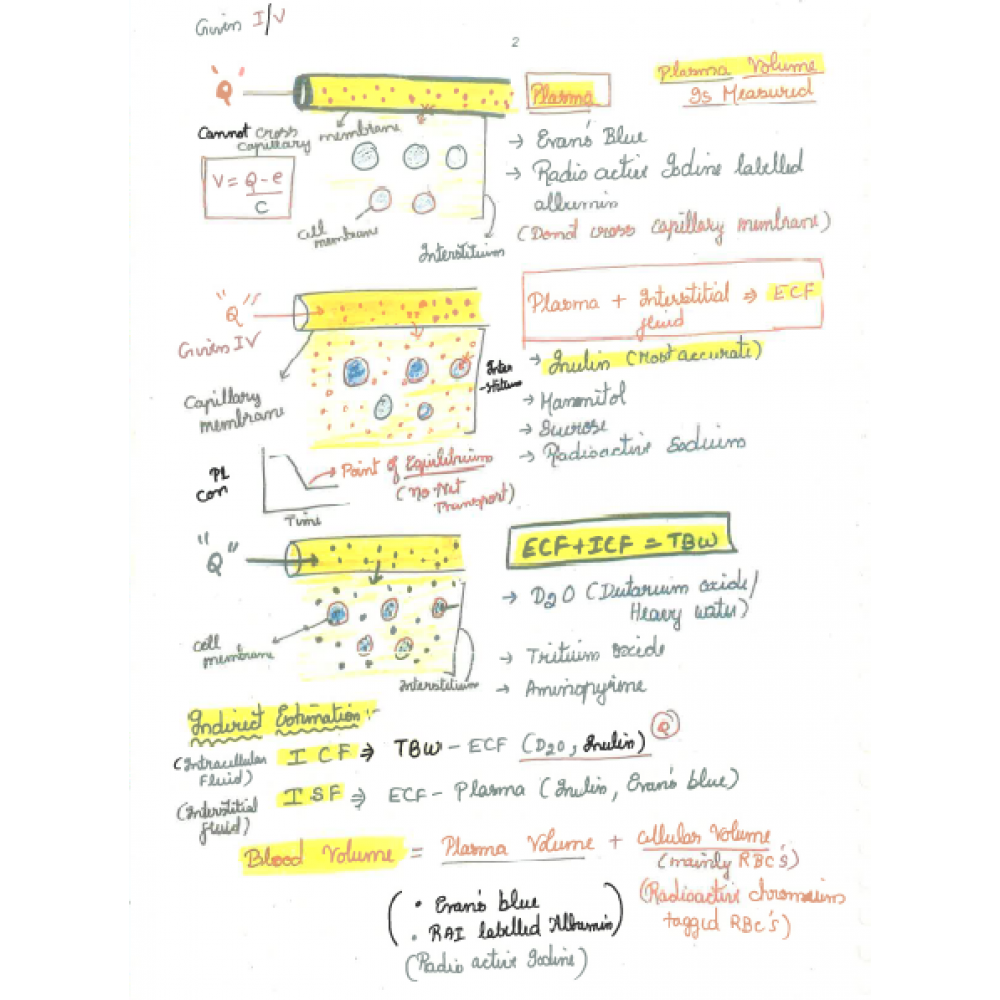 Given I/V
2
"Q"
Plasma
Plasma Volume
Is Measured
Cannot cross
capillary membrane
V = Q - e
C
→ Evan's Blue
→ Radio active Iodine labelled
albumin
(Donot cross capillary membrane)
Cell
membrane
Interstitium
"Q"
Given IV
Plasma + Interstitial ⇒ ECF
fluid
Capillary
membrane
Inter
-stitium
→ Inulin (Most accurate)
→ Mannitol
→ Sucrose
→ Radioactive Sodium
PL
Con
Point of Equilibrium
(No Net
Transport)
Time
"Q"
ECF + ICF = TBW
→ D2O (Dutarium oxide/
Heavy water)
→ Tritium oxide
→ Aminopyrine
cell
membrane
Interstitium
Indirect Estimation :-
(Intracellular
Fluid)
ICF ⇒ TBW - ECF (D2O, Inulin) Q
(Interstitial
fluid)
ISF ⇒ ECF - Plasma (Inulin, Evan's blue)
Blood Volume = Plasma Volume + Cellular Volume
(mainly RBC's)
(Radioactive chromium
tagged RBC's)
• Evan's blue
• RAI labelled Albumin
(Radio active Iodine)